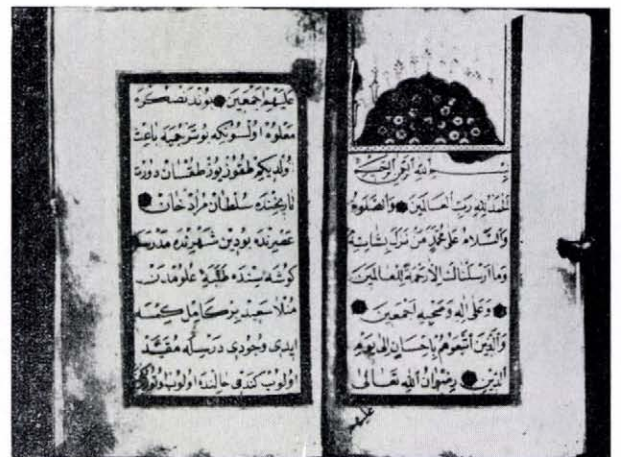 بسم الله الرحمن الرحيم
الحمد لله رب العالمين والصلوة
والسلام على محمد من نزل بشانه
وما ارسلناك الا رحمة للعالمين
وعلى اله وصحبه اجمعين
والذين اتبعوهم باحسان الى يوم
الدين رضوان الله تعالى
عليهم
عليهم اجمعين بوندنصكره
معلوم اولسونكه باعث
اولديكم طقوز يوز طقسان دورت
تاريخنده سلطان مراد خان
عصرنده بودين شهرنده مدرسه
كوشه سنده طلبۀ علومدن
منلا سعيد بر كامل كمسه
ايدى وجودى مقيد
اولوب كندى حالنده اولوب